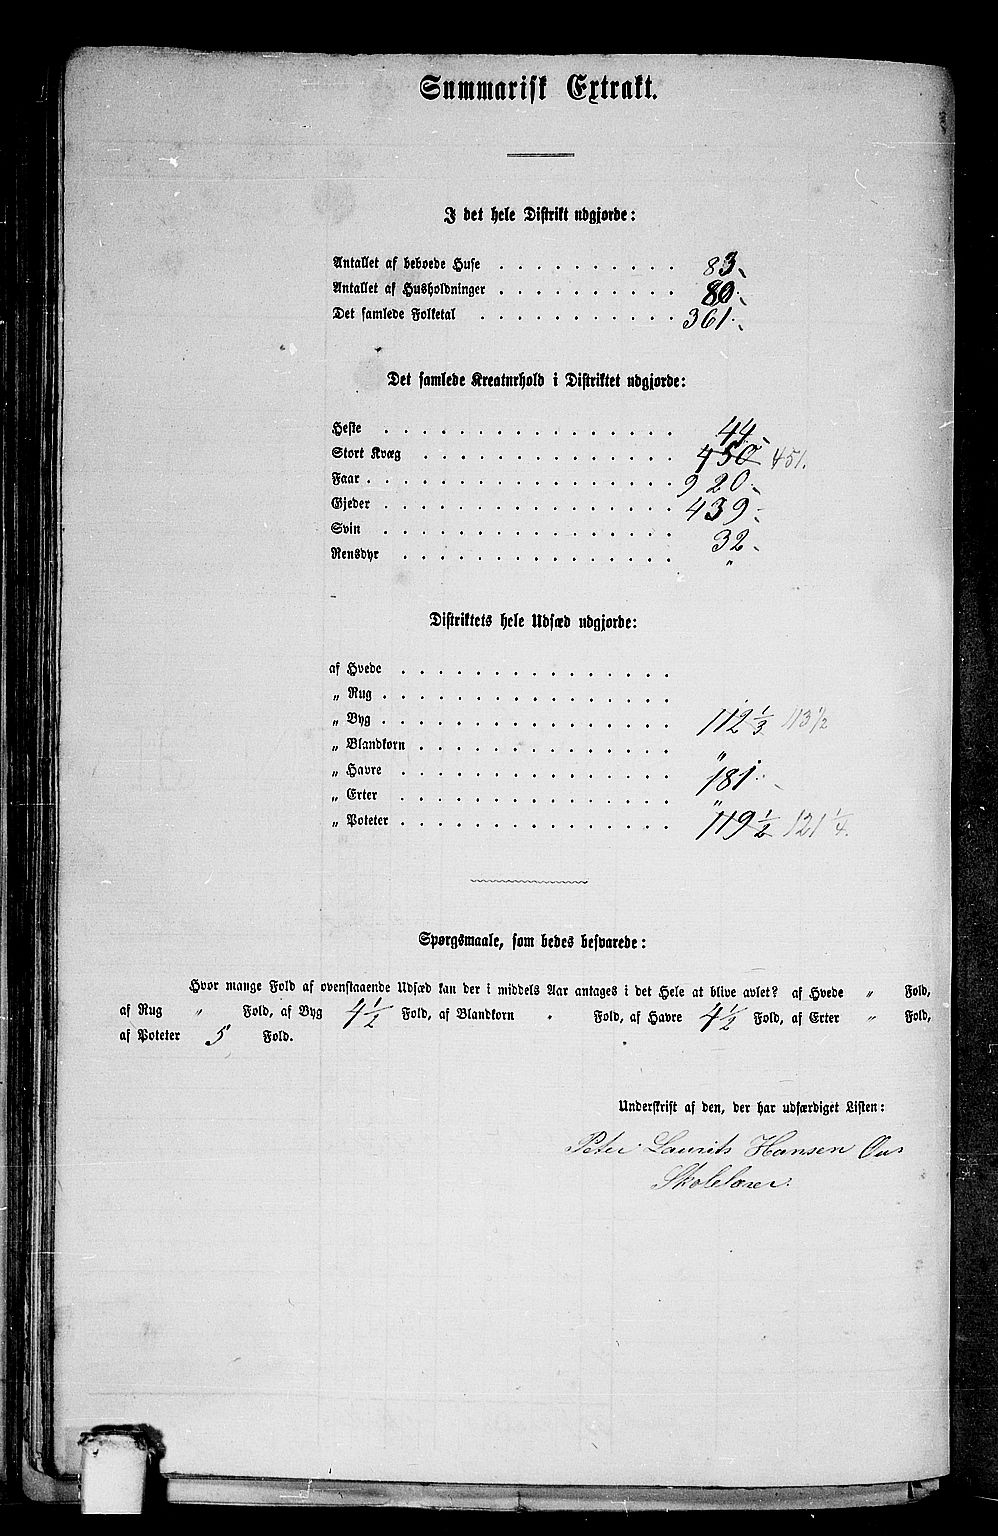 Summarisk Extrakt.
I det hele Distrikt udgjorde:
Antallet af beboede Huse . . . . . . . . . . 83
Antallet af Husholdninger . . . . . . . . . . 80
Det samlede Folketal . . . . . . . . . . . 361
Det samlede Kreaturhold i Distriktet udgjorde:
Heste . . . . . . . . . . . . . . . . 44
Stort Kvæg . . . . . . . . . . . . . . 450 451.
Faar . . . . . . . . . . . . . . . . . 920
Gjeder . . . . . . . . . . . . . . . . 439
Svin . . . . . . . . . . . . . . . . 32
Rensdyr . . . . . . . . . . . . . . . "
Distriktets hele Udsæd udgjorde:
af Hvede . . . . . . . . . . . . . . .
„ Rug . . . . . . . . . . . . . . . .
„ Byg . . . . . . . . . . . . . . . . 112 1/3 113 1/2
„ Blandkorn . . . . . . . . . . . . . . "
„ Havre . . . . . . . . . . . . . . . 181
„ Erter . . . . . . . . . . . . . . . "
„ Poteter . . . . . . . . . . . . . . . 119 1/2 121 1/4.
Spørgsmaale, som bedes besvarede:
Hvor mange Fold af ovenstaaende Udsæd kan der i middels Aar antages i det Hele at blive avlet? af Hvede " Fold,
af Rug " Fold, af Byg 4 1/2 Fold, af Blandkorn " Fold, af Havre 4 1/2 Fold, af Erter " Fold,
af Poteter 5 Fold.
Underskrift af den, der har udfærdiget Listen:
Peter Laurits Hansen
Skolelærer.